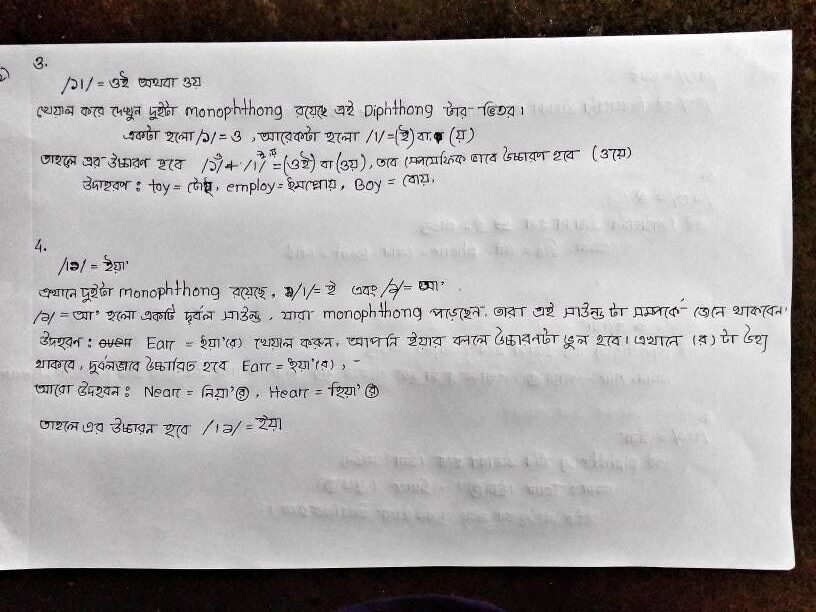 3.
/ɔI/ = ওই অথবা ওয়
খেয়াল করে দেখুন দুইটা monophthong রয়েছে এই Diphthong টার ভিতর।
একটা হলো /ɔ/ = ও , আরেকটা হলো /I/ = (ই) বা (য়)
তাহলে এর উচ্চারণ হবে /ɔ/ + /I/ = (ওই) বা (ওয়), তবে ভাবে উচ্চারণ হবে (ওয়ে)
উদাহরণ : toy = টোয়, employ = ইমপ্লোয়, Boy = বোয়,
4.
/Iə/ = ইয়া'
এখানে দুইটা monophthong রয়েছে, /I/ = ই এবং /ə/ = আ'
/ə/ = আ' হলো একটি দুর্বল সাউন্ড, যারা monophthong পড়েছেন, তারা এই সাউন্ড টা সম্পর্কে জেনে থাকবেন।
উদহরন : Ear = ইয়া'(র) খেয়াল করুন, আপনি ইয়ার বললে উচ্চারনটা ভুল হবে। এখানে (র) টা উহ্য
থাকবে, দুর্বলভাবে উচ্চারিত হবে Ear = ইয়া'(র) , -
আরো উদহরন : Near = নিয়া'(র) , Hear = হিয়া'(র)
তাহলে এর উচ্চারন হবে /Iə/ = ইয়া